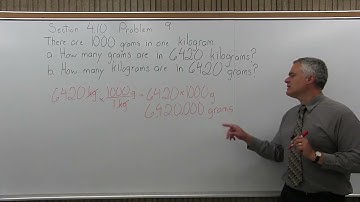 Section 4.10 Problem 9
There are 1000 grams in one kilogram.
a. How many grams are in 6420 kilograms?
b. How many kilograms are in 6420 grams?
6420 kg × 1000 g / 1 kg = 6420 × 1000 g
6,420,000 grams